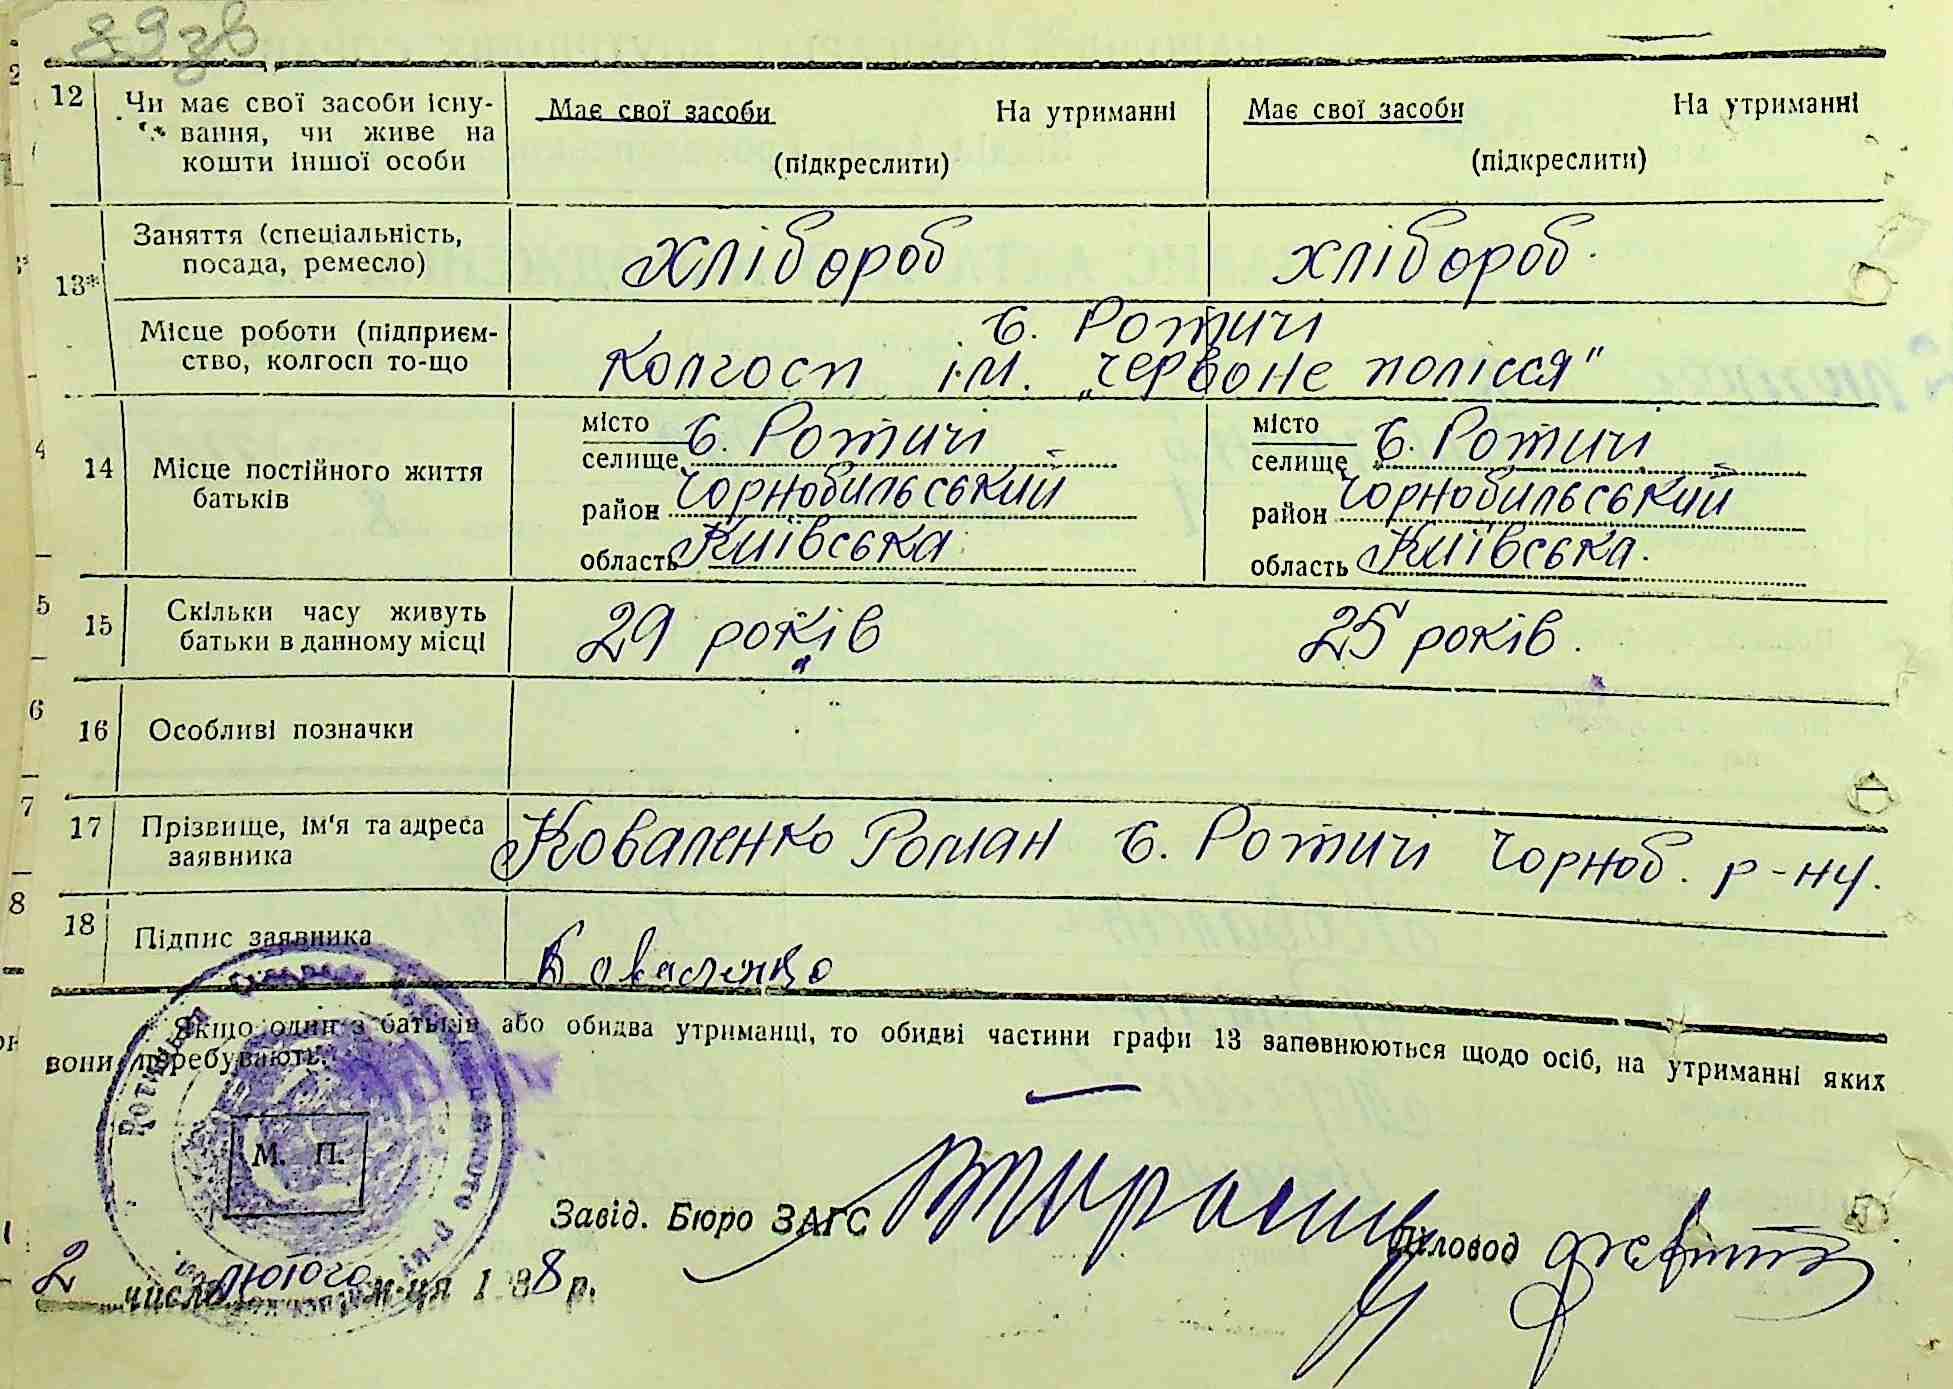 89зв
12 Чи має свої засоби існу-
вання, чи живе на
кошти іншої особи
Має свої засоби На утриманні
(підкреслити)
Має свої засоби На утриманні
(підкреслити)
13*
Заняття (спеціальність,
посада, ремесло)
хлібороб хлібороб.
Місце роботи (підприєм-
ство, колгосп то-що
с. Ротичі
Колгосп ім. „Червоне полісся"
14 Місце постійного життя
батьків
місто
селище с. Ротичі
район Чорнобильський
область Київська
місто
селище с. Ротичі
район Чорнобильський
область Київська.
15 Скільки часу живуть
батьки в данному місці
29 років 25 років.
16 Особливі позначки
17 Прізвище, ім'я та адреса
заявника
Коваленко Роман с. Ротичі Чорноб. р-ну.
18 Підпис заявника
Коваленко
Якщо один з батьків або обидва утриманці, то обидві частини графи 13 заповнюються щодо осіб, на утриманні яких
вони перебувають.
М. П.
Завід. Бюро ЗАГС
Діловод
2 числа лютого м-ця 1938 р.